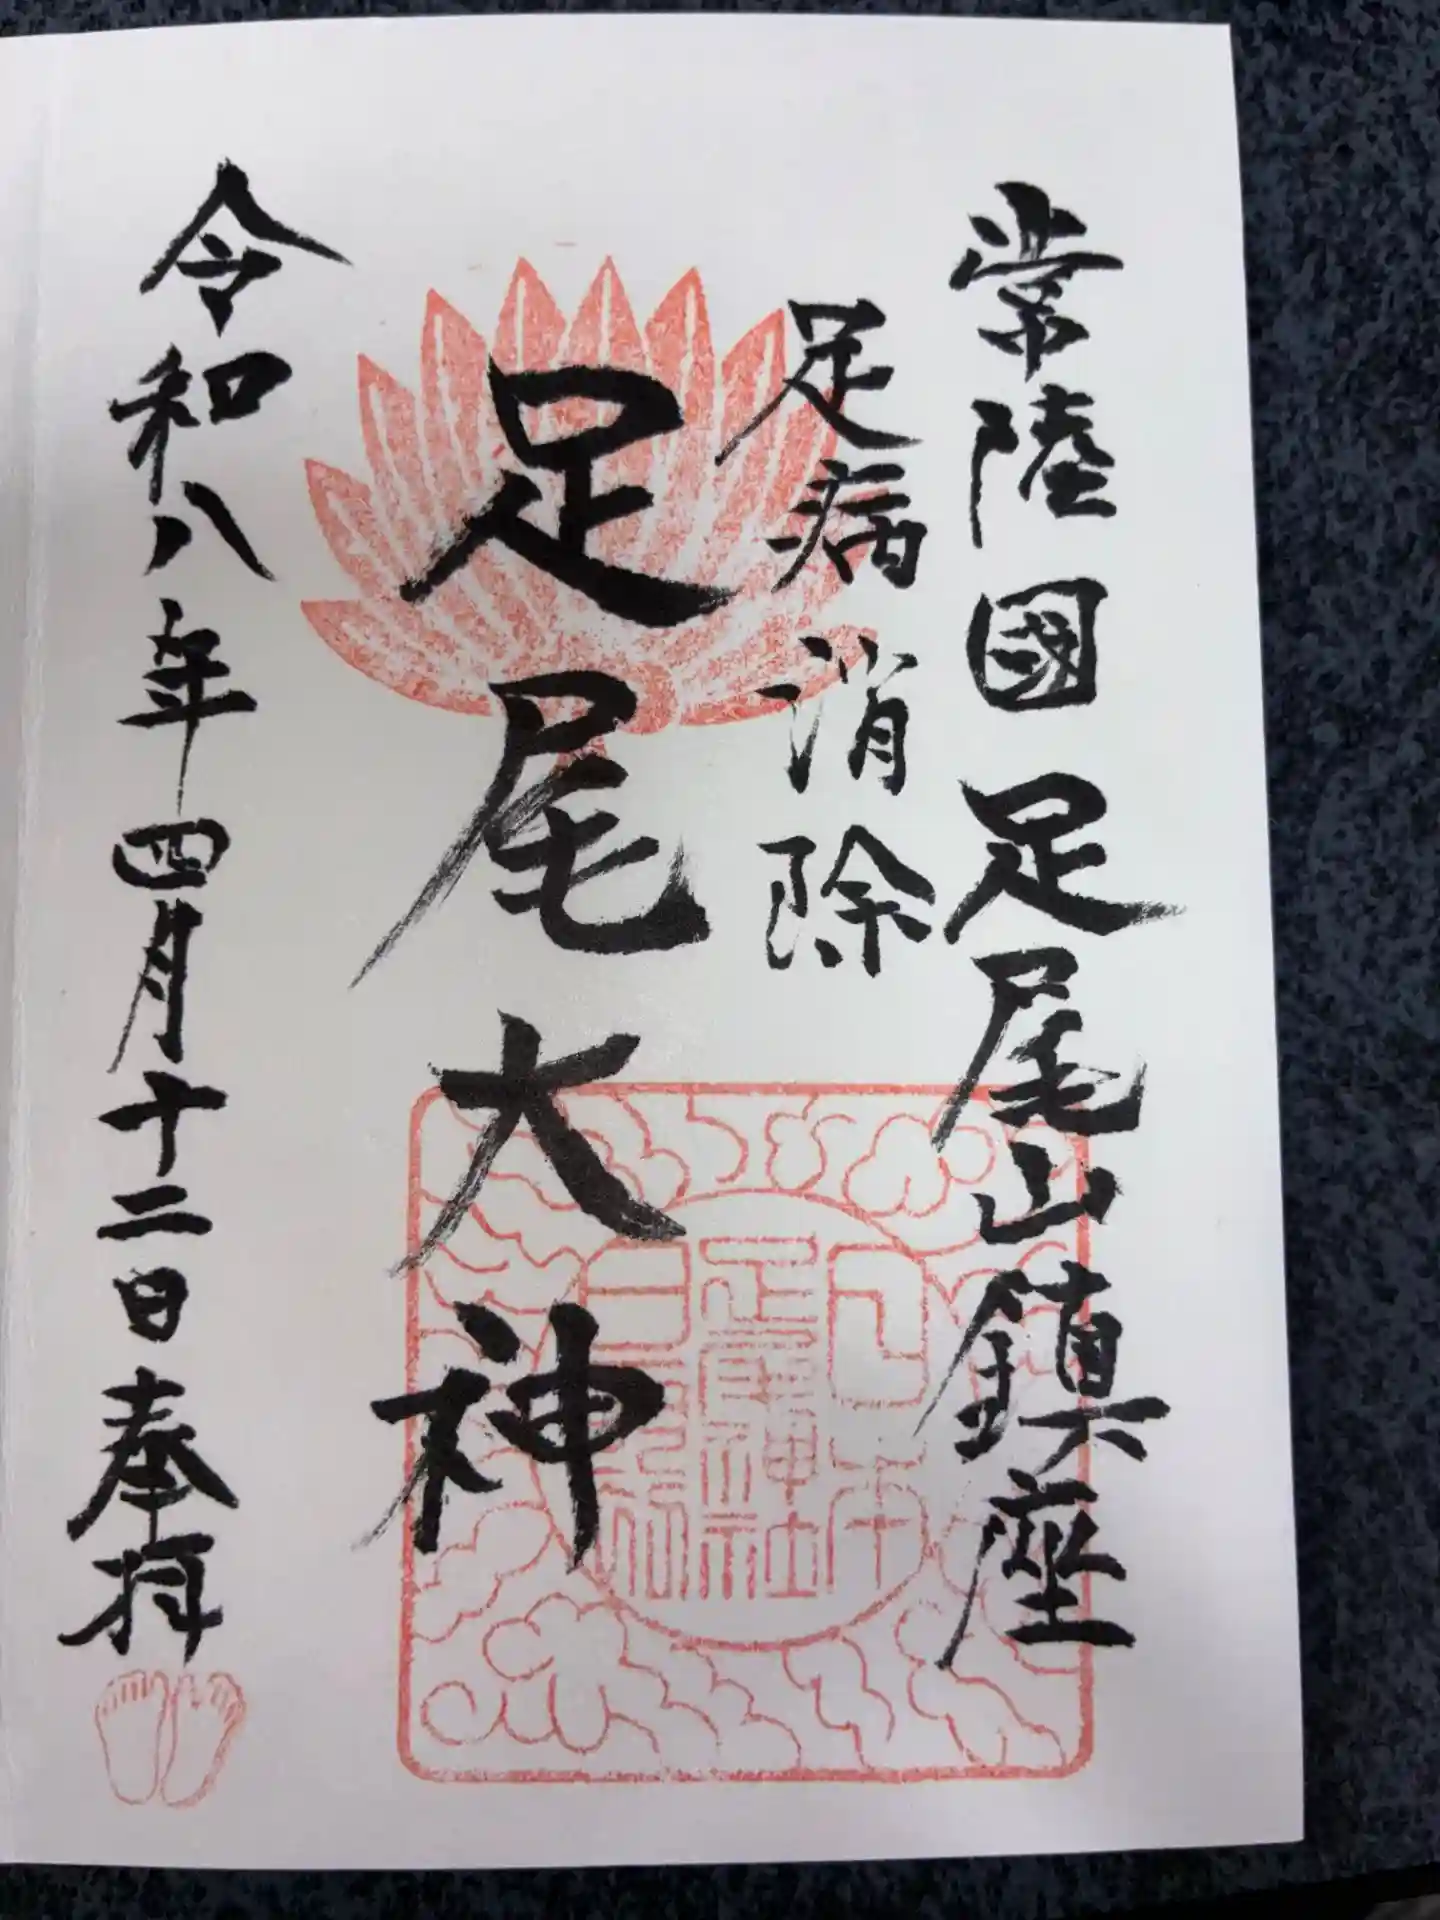 常陸國足尾山鎮座
足病消除
足尾大神
令和八年四月十二日奉拝